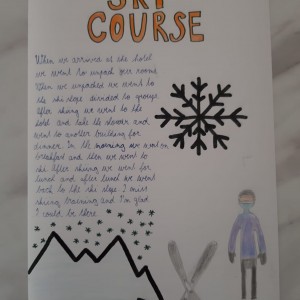 SKI
COURSE
When we arrived at the hotel
we went to unpack your rooms.
When we unpacked we went to
the ski slope divided to groups
after skiing we went to the
hotel and take the shower and
went to another building for
dinner. In the morning we went on
breakfast and then we went to
ski after skiing we went for
lunch and after lunch we went
back to the ski slope. I miss
skiing training and I'm glad
I could be there.